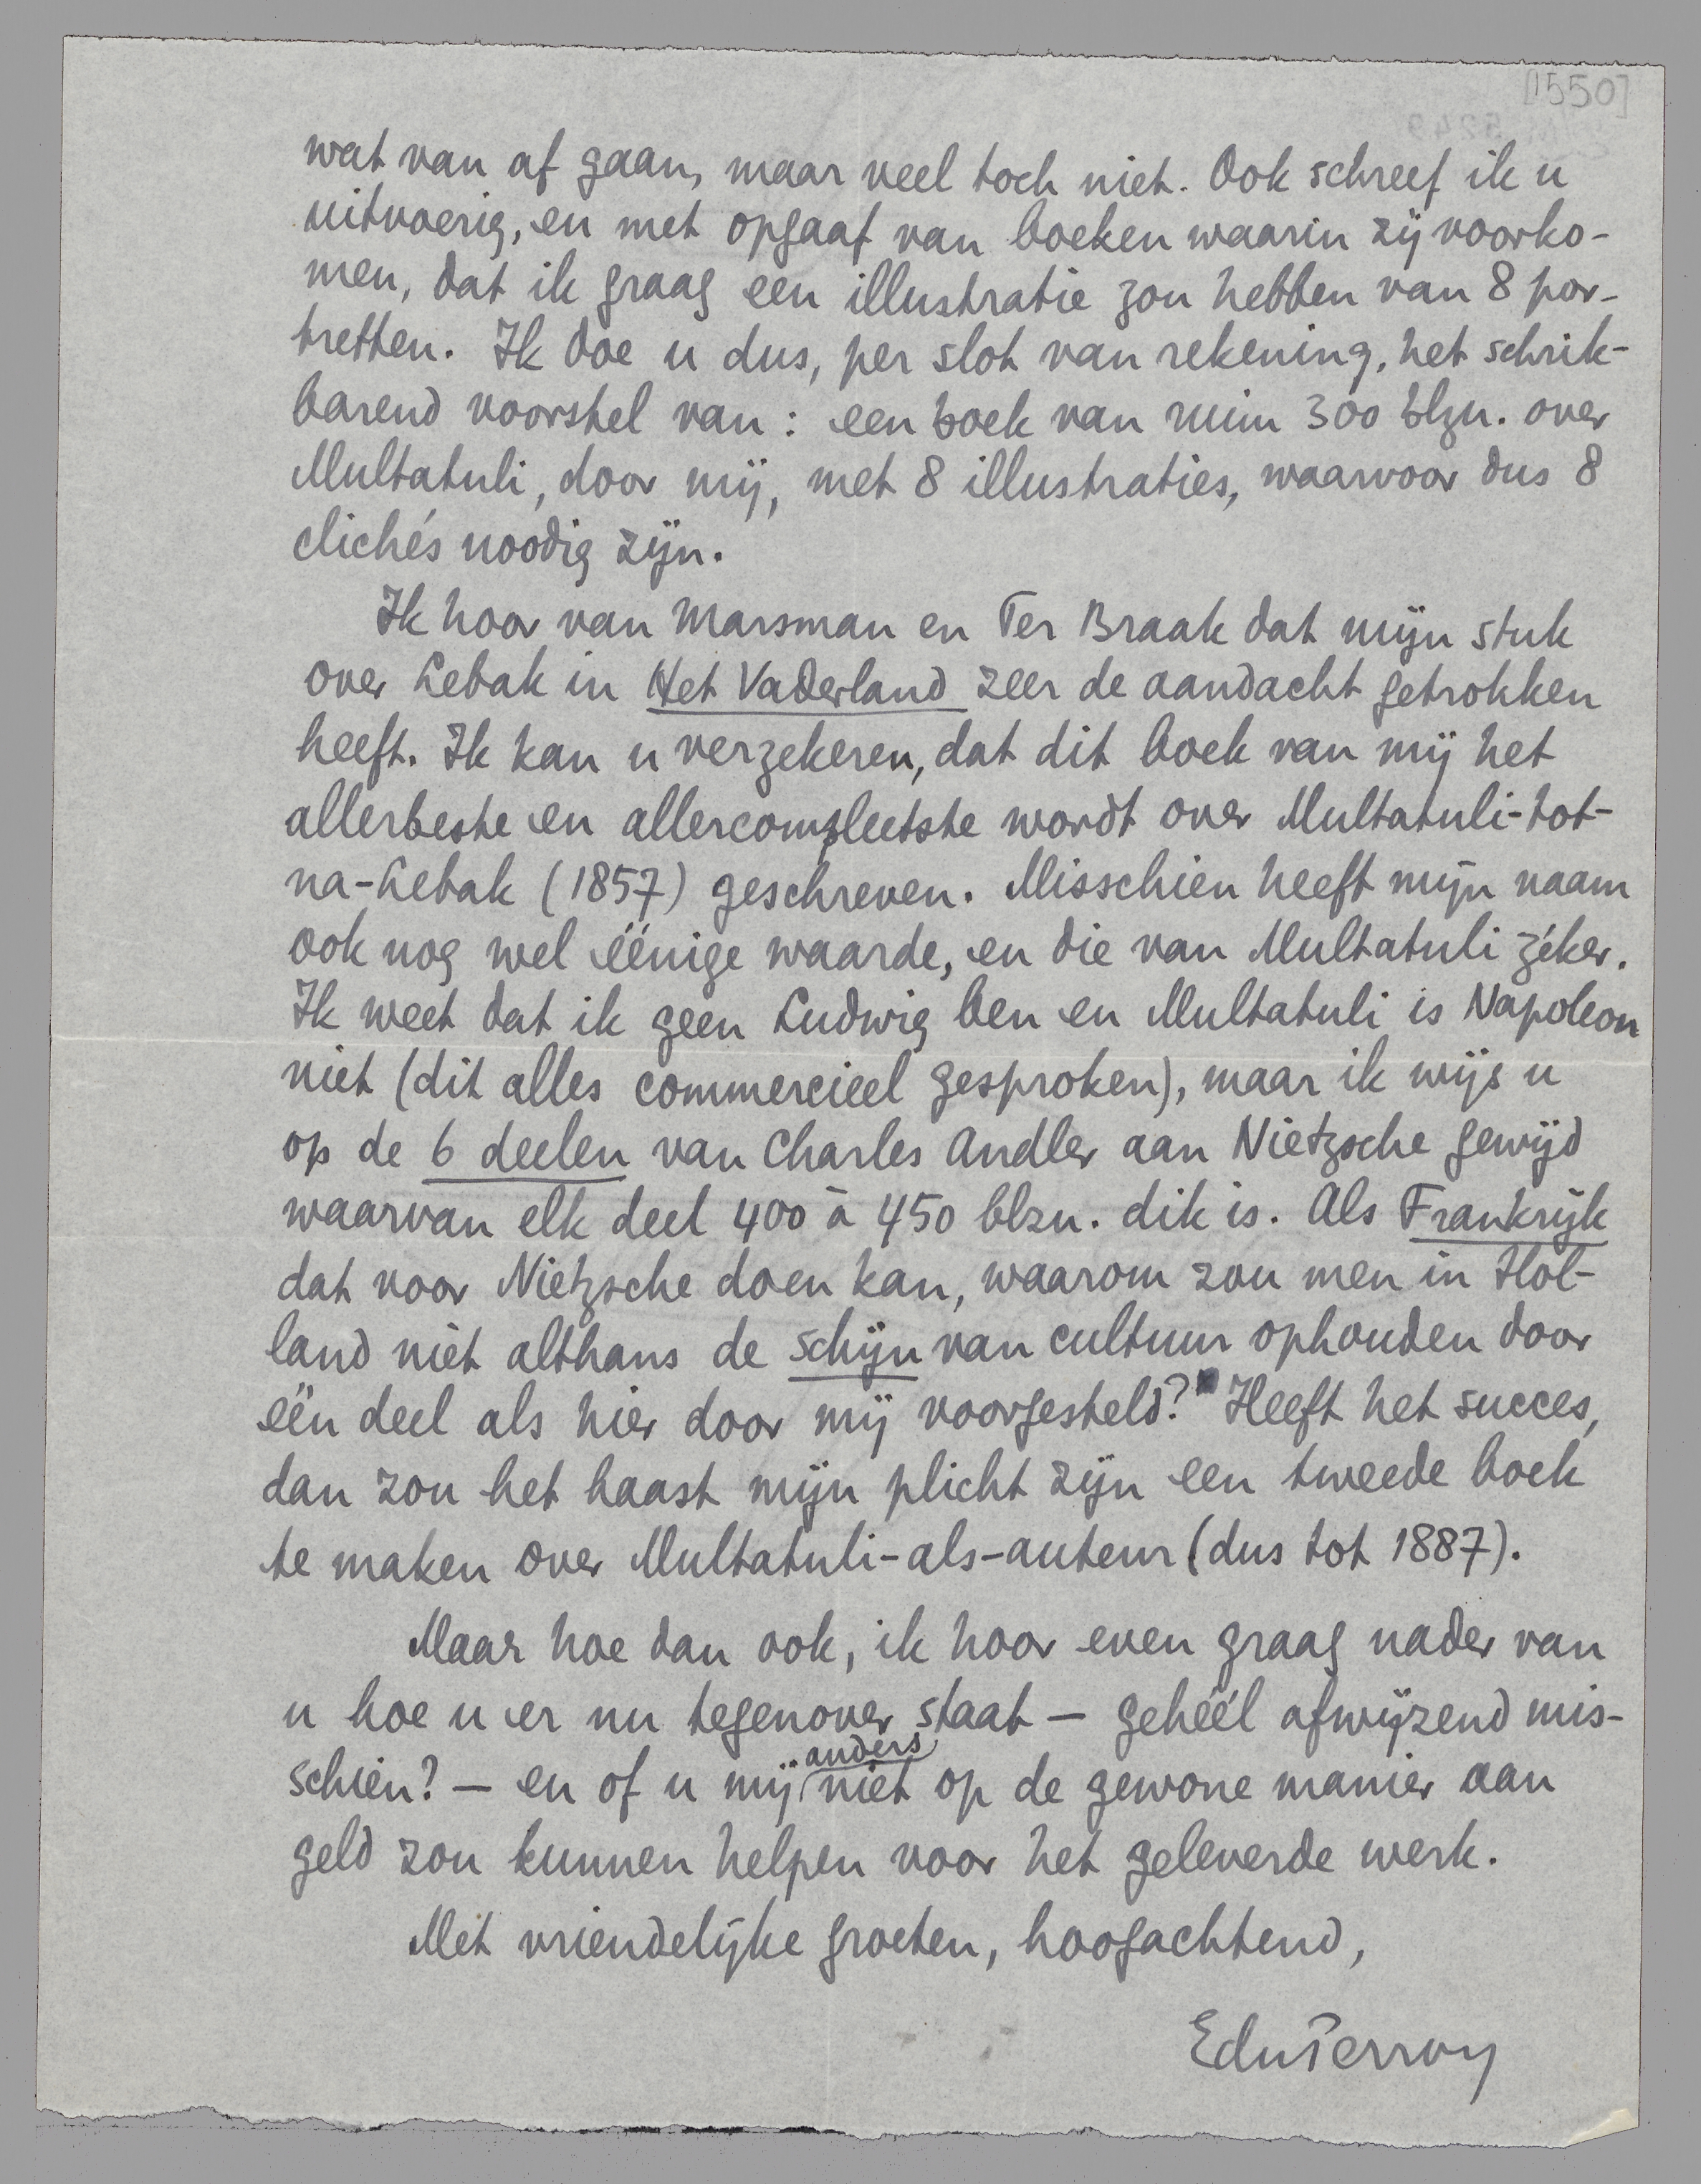 [1550]
wat van af gaan, maar veel toch niet. Ook schreef ik u
uitvoerig, en met opgaaf van boeken waarin zij voorko-
men, dat ik graag een illustratie zou hebben van 8 por-
tretten. Ik doe u dus, per slot van rekening, het schrik-
barend voorstel van: een boek van ruim 300 blzn. over
Multatuli, door mij, met 8 illustraties, waarvoor dus 8
clichés noodig zijn.
Ik hoor van Marsman en Ter Braak dat mijn stuk
over Lebak in Het Vaderland zeer de aandacht getrokken
heeft. Ik kan u verzekeren, dat dit boek van mij het
allerbeste en allercompleetste wordt over Multatuli-tot-
na-Lebak (1857) geschreven. Misschien heeft mijn naam
ook nog wel éénige waarde, en die van Multatuli zéker.
Ik weet dat ik geen Ludwig ben en Multatuli is Napoleon
niet (dit alles commercieel gesproken), maar ik wijs u
op de 6 deelen van Charles Andler aan Nietzsche gewijd
waarvan elk deel 400 à 450 blzn. dik is. Als Frankrijk
dat voor Nietzsche doen kan, waarom zou men in Hol-
land niet althans de schijn van cultuur ophouden door
één deel als hier door mij voorgesteld? Heeft het succes,
dan zou het haast mijn plicht zijn een tweede boek
te maken over Multatuli-als-auteur (dus tot 1887).
Maar hoe dan ook, ik hoor even graag nader van
u hoe u er nu tegenover staat — gehéél afwijzend mis-
schien? — en of u mij anders niet op de gewone manier aan
geld zou kunnen helpen voor het geleverde werk.
Met vriendelijke groeten, hoogachtend,
EduPerron